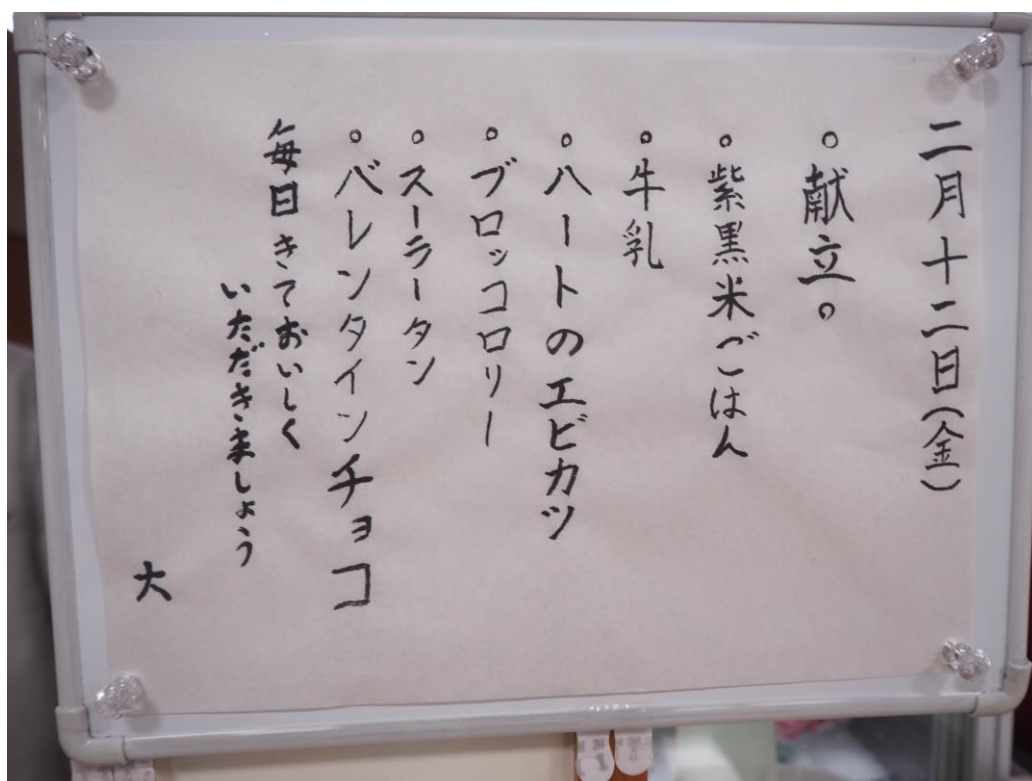 二月十二日(金)
。献立。
。紫黒米ごはん
。牛乳
。ハートのエビカツ
。ブロッコロリー
。スーラータン
。バレンタインチョコ
毎日きておいしく
いただきましょう
大